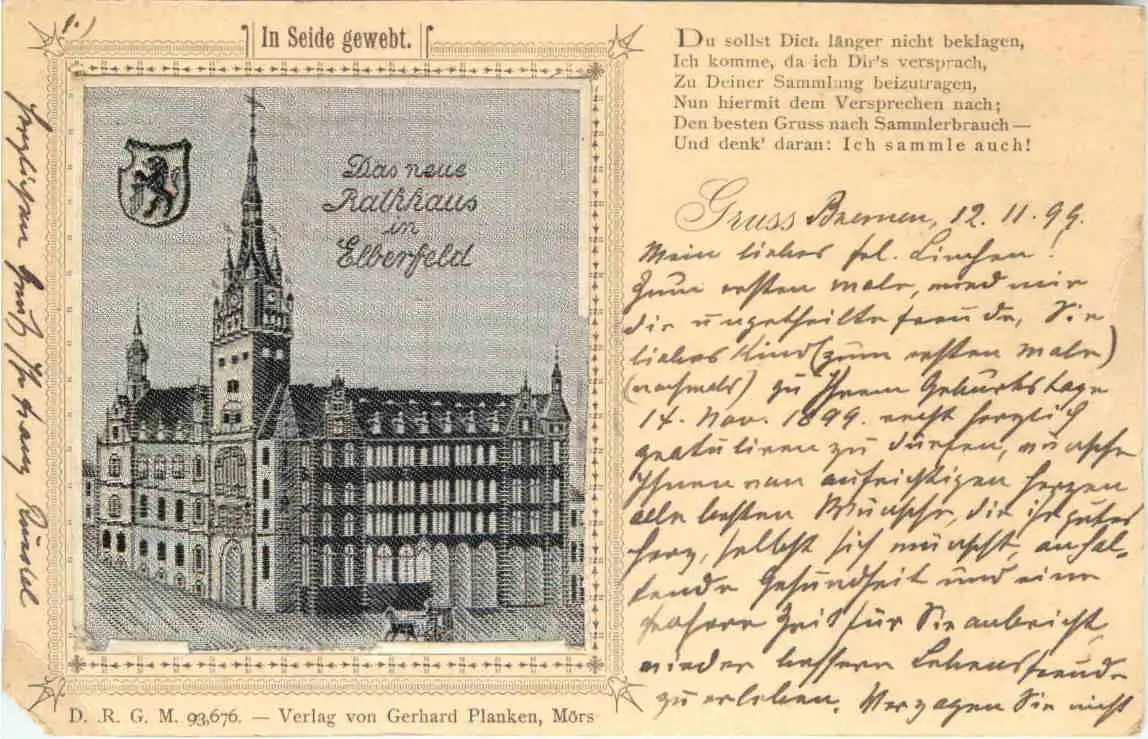 1.)
In Seide gewebt.
Das neue
Rathhaus
in
Elberfeld
D. .R. G. M. 93,676. — Verlag von Gerhard Planken, Mörs
Du sollst Dich länger nicht beklagen,
Ich komme, da ich Dir's versprach,
Zu Deiner Sammlung beizutragen,
Nun hiermit dem Versprechen nach;
Den besten Gruss nach Sammlerbrauch —
Und denk' daran: Ich sammle auch!
Gruss Bremen, 12. 11. 99.
Mein liebes frl. Linchen!
Zum ersten male, wird mir
die ungetheilte freude, Sie
liebes Kind (zum ersten male)
(nochmals) zu Ihrem Geburtstage
14. Nov. 1899. recht herzlich
gratuliren zu dürfen, wünsche
Ihnen von aufrichtigen Herzen
alle besten Wünsche, die ihr gutes
Herz, selbst sich wünscht, anhal-
tende Gesundheit und eine
frohere Zeit für Sie anbricht,
wieder bessern Lebensfreude
zu erleben. Verzagen Sie nicht
herzlichen Gruß Ihr